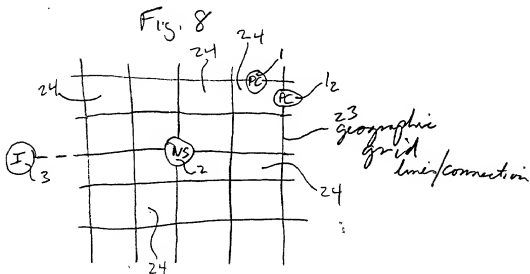 Fig. 8
24
24
24
1
PC
12
PC
23
geographic
grid
lines/connection
I
3
NS
2
24
24